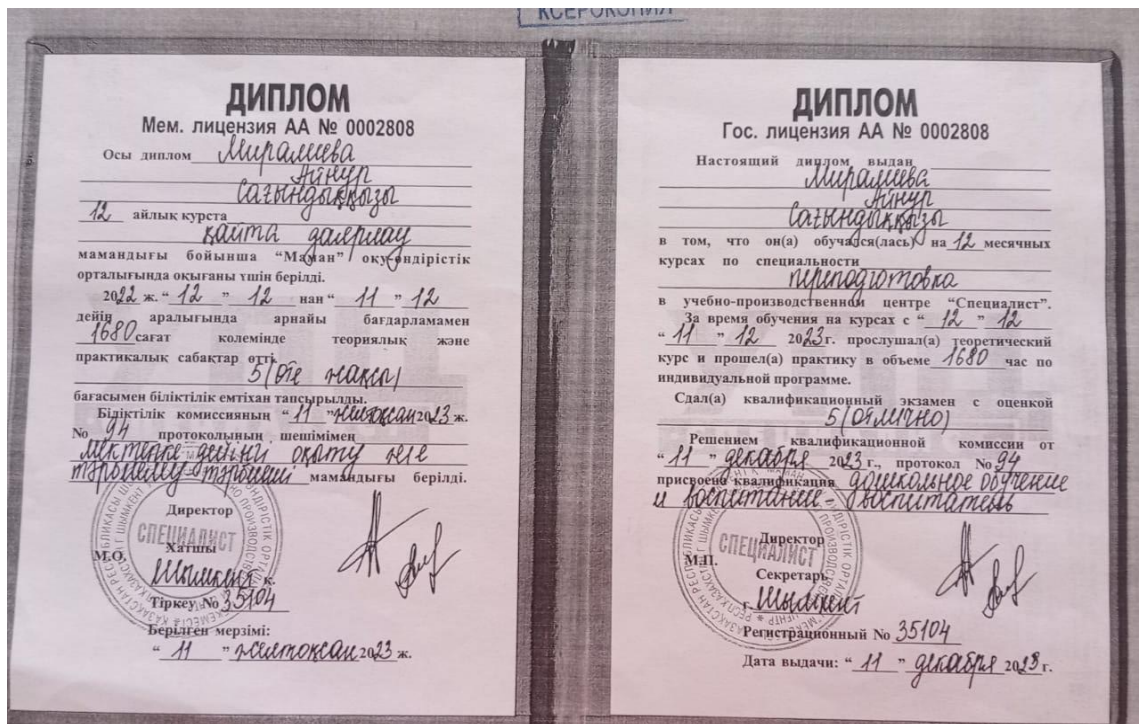 КСЕРОКОПИЯ
ДИПЛОМ
Мем. лицензия АА № 0002808
Осы диплом Миралиева
Айнур
Сағындыққызы
12 айлық курста
қайта даярлау
мамандығы бойынша “Маман” оқу-өндірістік
орталығында оқығаны үшін берілді.
2022 ж. “ 12 ” 12 нан “ 11 ” 12
дейін аралығында арнайы бағдарламамен
1680 сағат көлемінде теориялық және
практикалық сабақтар өтті.
5 (өте жақсы)
бағасымен біліктілік емтіхан тапсырылды.
Біліктілік комиссияның “ 11 ” желтоқсан 2023 ж.
№ 94 протоколының шешімімен
мектепке дейінгі оқыту және
тәрбиелеу-тәрбиеші мамандығы берілді.
Директор
СПЕЦИАЛИСТ
Хатшы
М.О.
Шымкент к.
Тіркеу № 35104
Берілген мерзімі:
“ 11 ” желтоқсан 2023 ж.
ДИПЛОМ
Гос. лицензия АА № 0002808
Настоящий диплом выдан
Миралиева
Айнур
Сағындыққызы
в том, что он(а) обучался(лась) на 12 месячных
курсах по специальности
переподготовка
в учебно-производственном центре “Специалист”.
За время обучения на курсах с “ 12 ” 12
“ 11 ” 12 2023 г. прослушал(а) теоретический
курс и прошел(а) практику в объеме 1680 час по
индивидуальной программе.
Сдал(а) квалификационный экзамен с оценкой
5 (отлично)
Решением квалификационной комиссии от
“ 11 ” декабря 2023 г., протокол № 94
присвоена квалификация дошкольное обучение
и воспитание - воспитатель
Директор
СПЕЦИАЛИСТ
М.П.
Секретарь
г. Шымкент
Регистрационный № 35104
Дата выдачи: “ 11 ” декабря 2023 г.